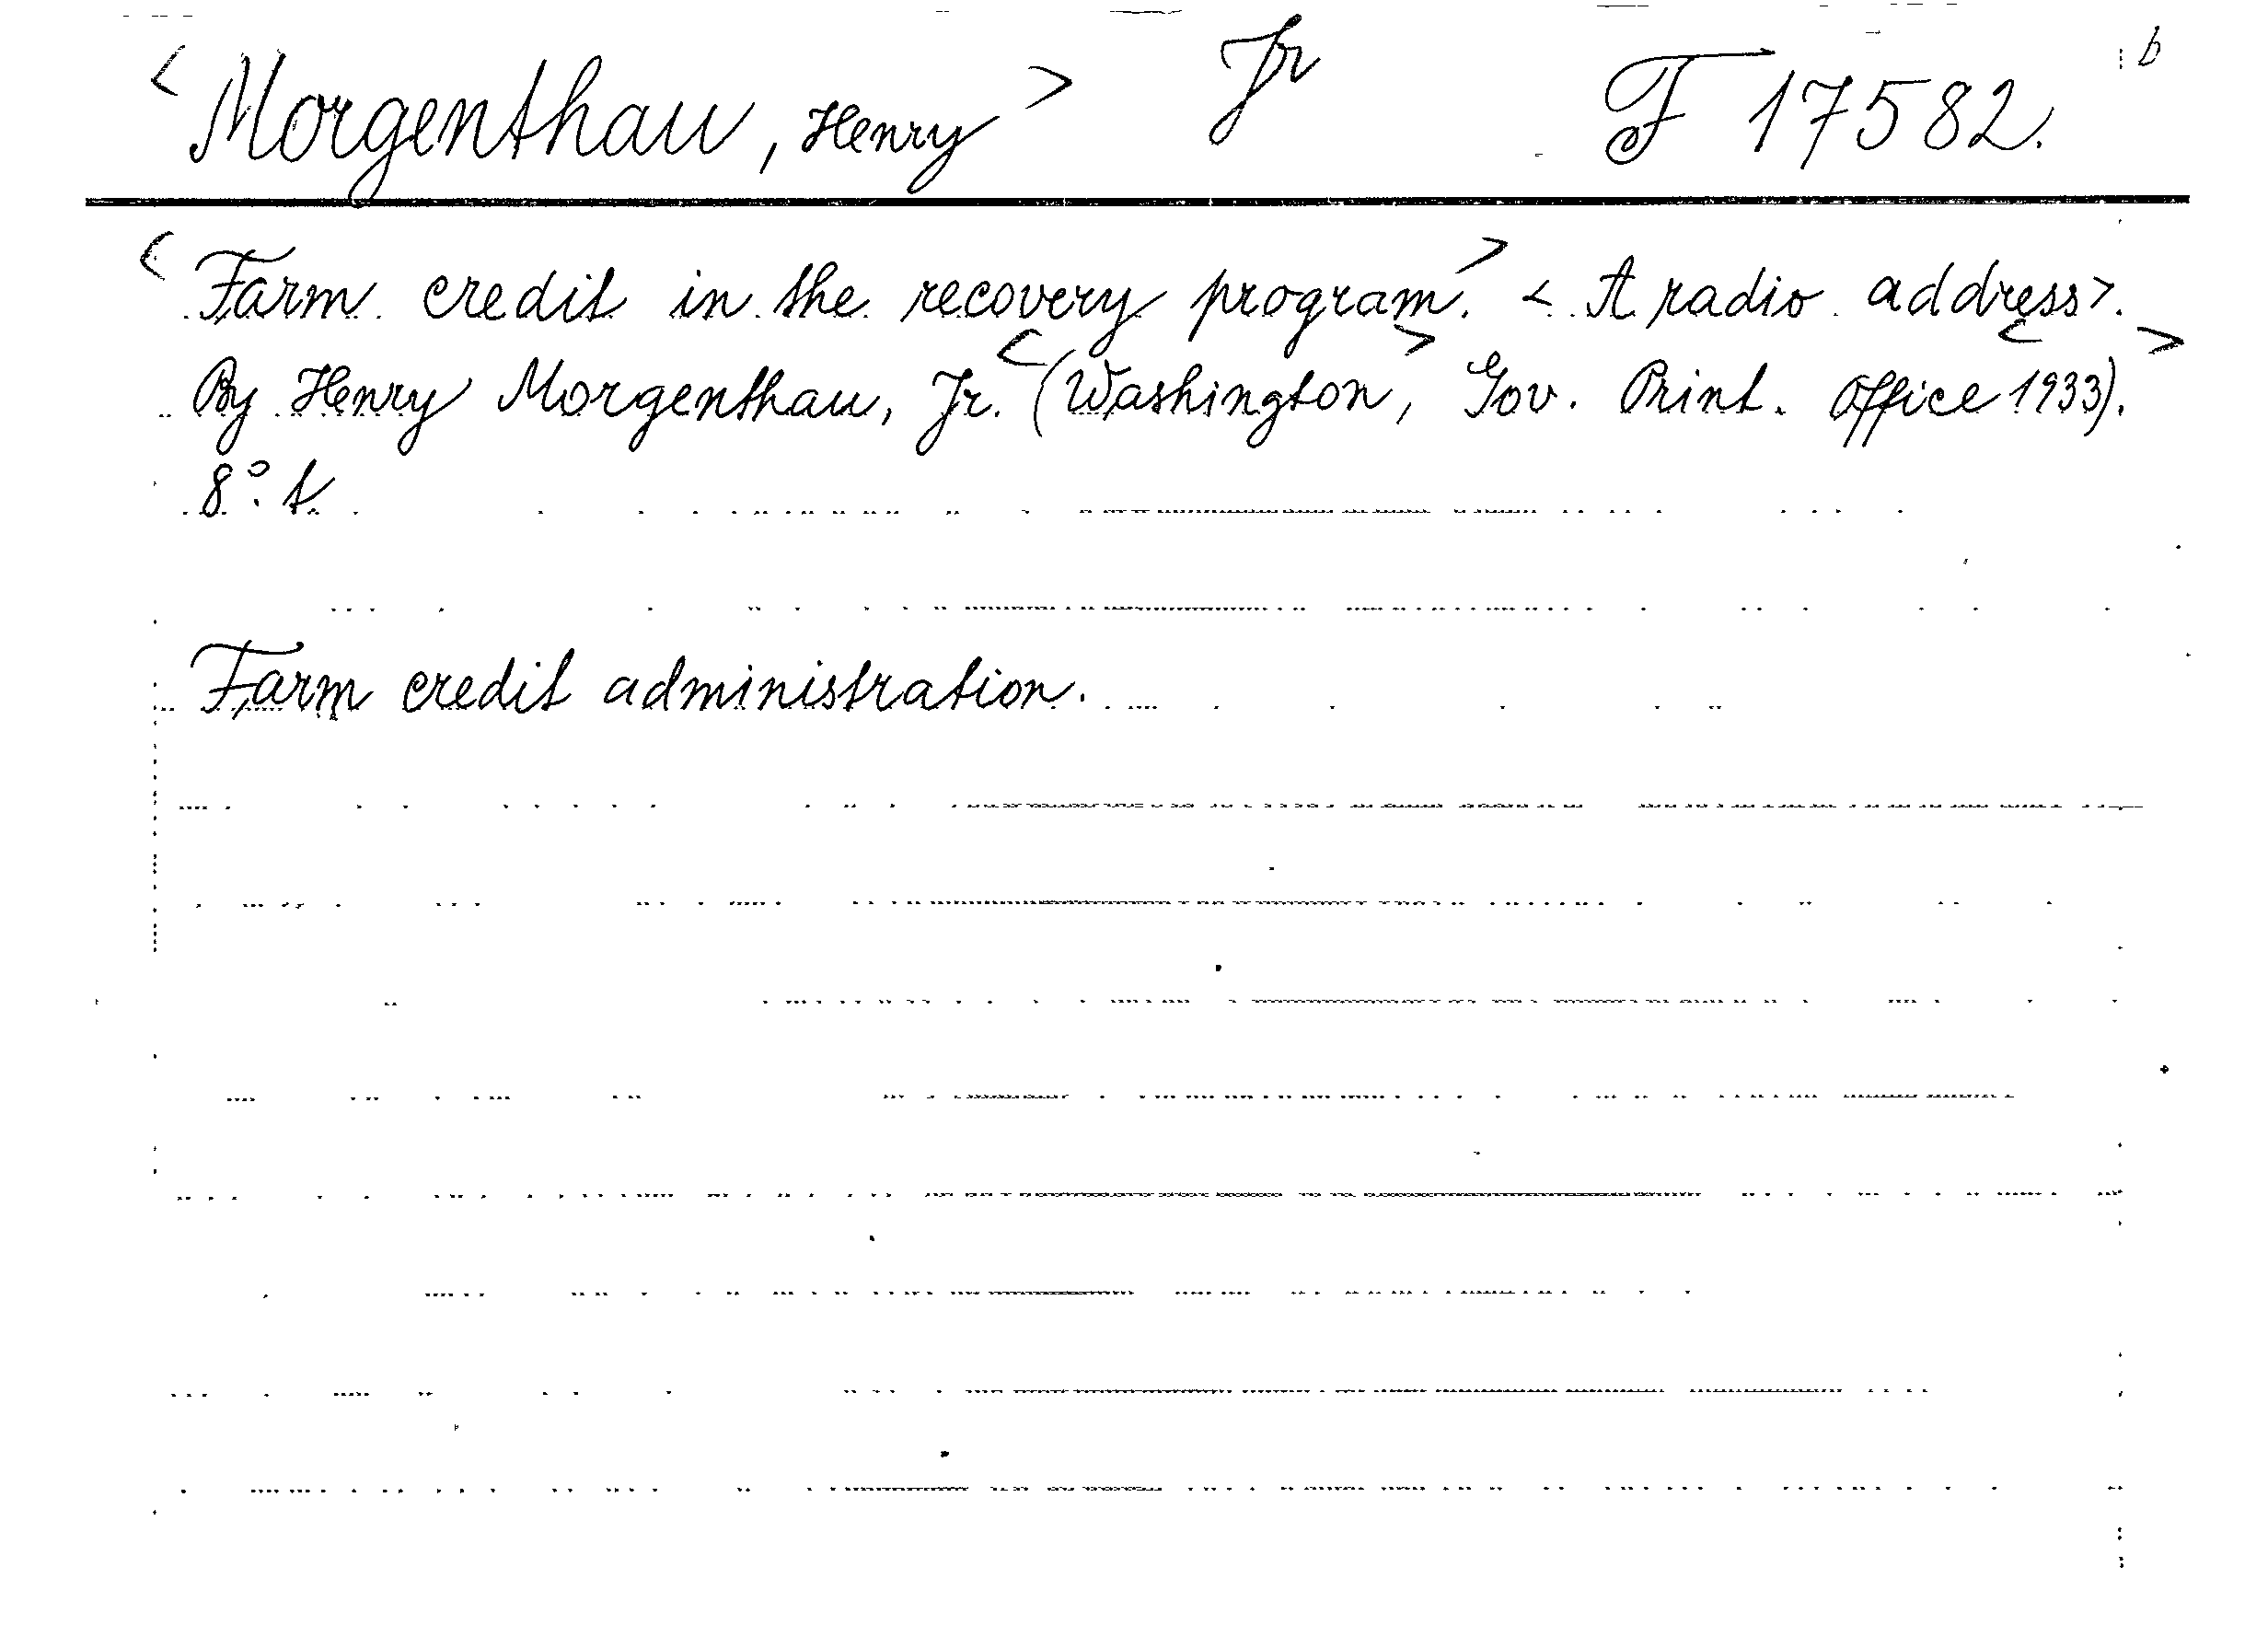 <Morgenthau, Henry> Jr F 17582. b
<Farm credit in the recovery program.> <A radio address>.
By Henry Morgenthau, Jr. <(Washington,> Gov. Print. Office <1933).>
8°. t
Farm credit administration.